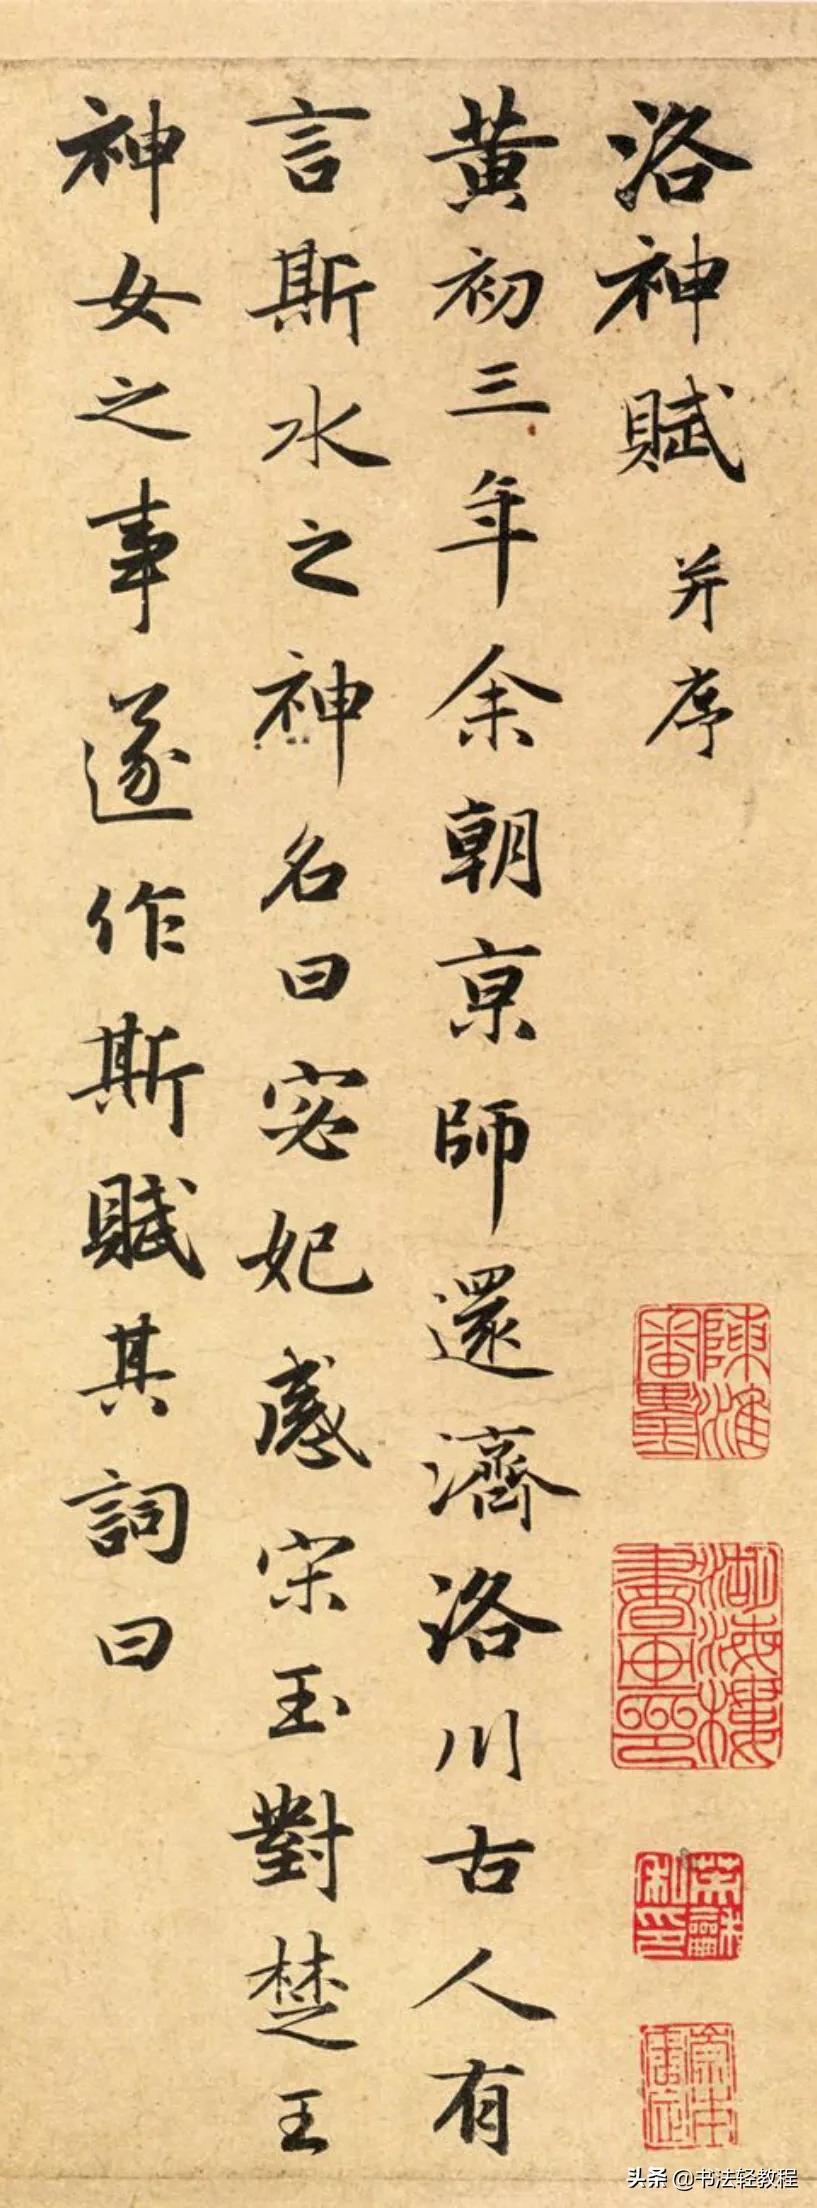 洛神賦 并序
黄初三年余朝京師還濟洛川古人有
言斯水之神名曰宓妃感宋玉對楚王
神女之事遂作斯賦其詞曰
陳淮
審墨
湖海樓
書画印
头条 @书法轻教程